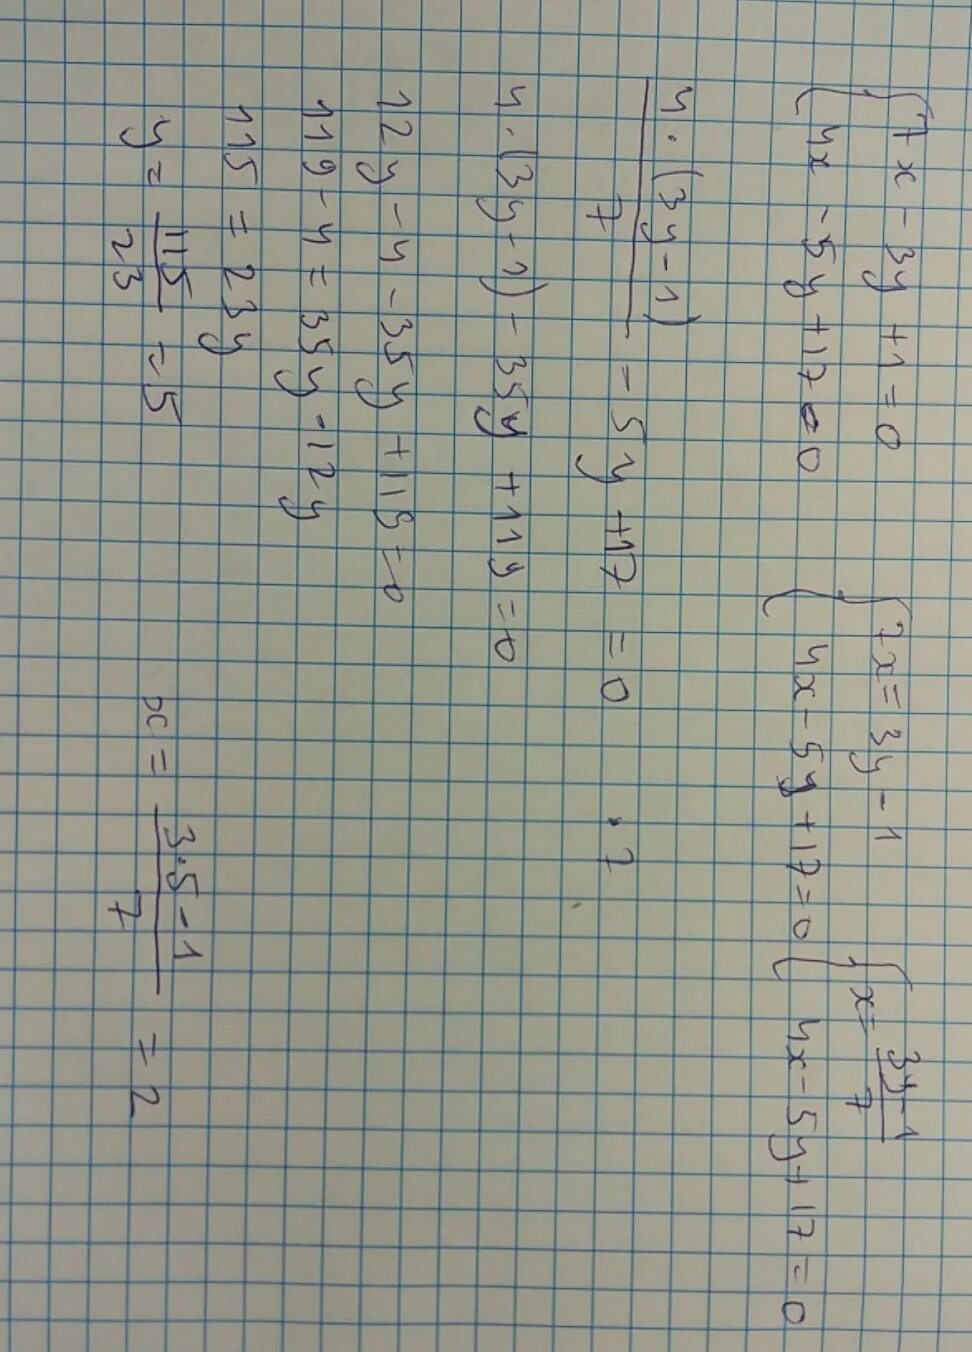 7x - 3y + 1 = 0
4x - 5y + 17 = 0
7x = 3y - 1
4x - 5y + 17 = 0
x = 3y-1/7
4x - 5y + 17 = 0
4·(3y-1)/7 - 5y + 17 = 0 ·7
4·(3y-1) - 35y + 119 = 0
12y - 4 - 35y + 119 = 0
119 - 4 = 35y - 12y
115 = 23y
y = 115/23 = 5
x = 3·5-1/7 = 2